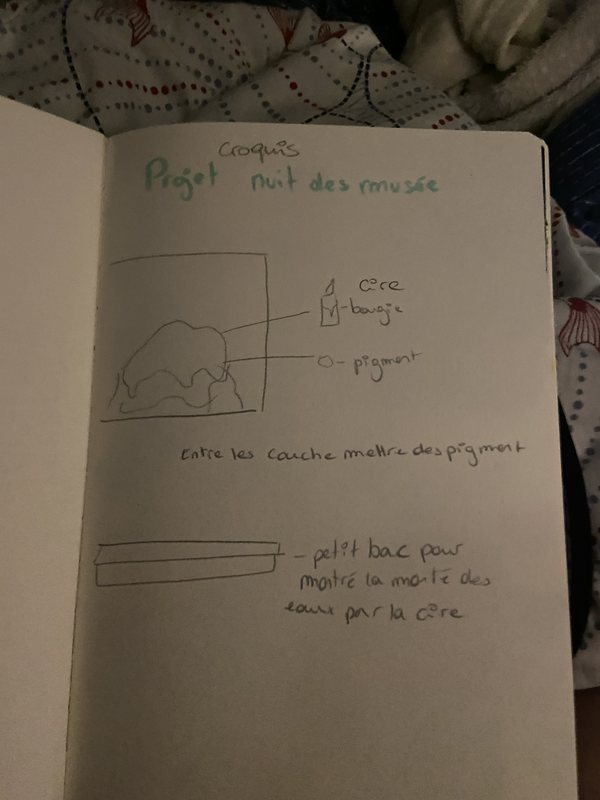 Croquis
Projet nuit des musée
cire
- bougie
- pigment
Entre les couche mettre des pigment
- petit bac pour
montré la monté des
eaux par la cire